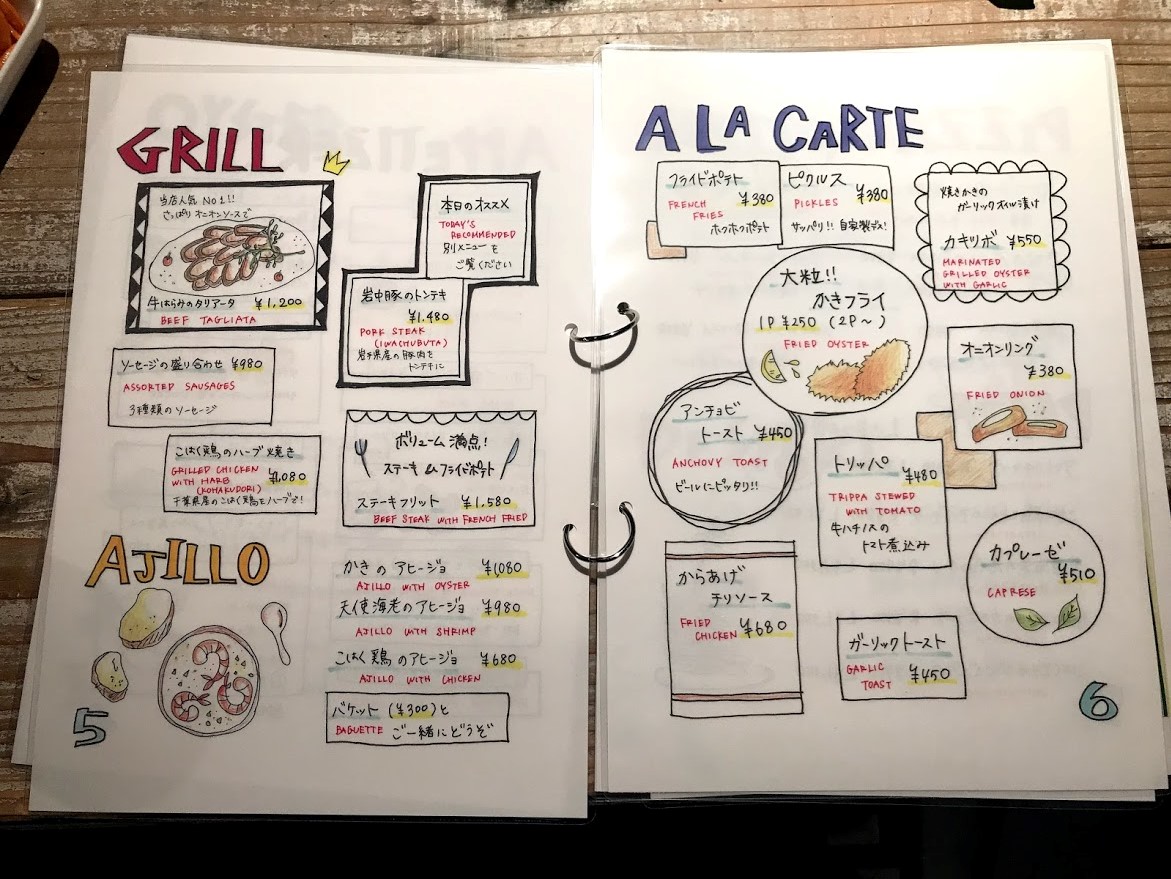 GRILL
当店人気 No1!!
さっぱり オニオンソースで
牛はらみのタリアータ ¥1,200
BEEF TAGLIATA
本日のオススメ
TODAY'S
RECOMMENDED
別メニューを
ご覧ください
岩中豚のトンテキ
¥1,480
PORK STEAK
(IWACHUBUTA)
岩手県産の豚肉を
トンテキに
ソーセージの盛り合わせ ¥980
ASSORTED SAUSAGES
3種類のソーセージ
こはく鶏のハーブ焼き
GRILLED CHICKEN
WITH HARB
(KOHAKUDORI)
¥1,080
千葉県産のこはく鶏をハーブで!
ボリューム満点!
ステーキ & フライドポテト
ステーキフリット ¥1,580
BEEF STEAK WITH FRENCH FRIED
AJILLO
かきのアヒージョ ¥1,080
AJILLO WITH OYSTER
天使海老のアヒージョ ¥980
AJILLO WITH SHRIMP
こはく鶏のアヒージョ ¥680
AJILLO WITH CHICKEN
バゲット (¥300)と
BAGUETTE ご一緒にどうぞ
5
A LA CARTE
フライドポテト
FRENCH
FRIES
¥380
ホクホクポテト
ピクルス
PICKLES
¥380
サッパリ!! 自家製デス!
焼きかきの
ガーリックオイル漬け
カキリボ ¥550
MARINATED
GRILLED OYSTER
WITH GARLIC
大粒!!
かきフライ
1P ¥250 (2P〜)
FRIED OYSTER
オニオンリング
¥380
FRIED ONION
アンチョビ
トースト ¥450
ANCHOVY TOAST
ビールにピッタリ!!
トリッパ
¥480
TRIPPA STEWED
WITH TOMATO
牛ハチノスの
トマト煮込み
カプレーゼ
¥510
CAPRESE
からあげ
チリソース
FRIED
CHICKEN ¥680
ガーリックトースト
GARLIC
TOAST ¥450
6